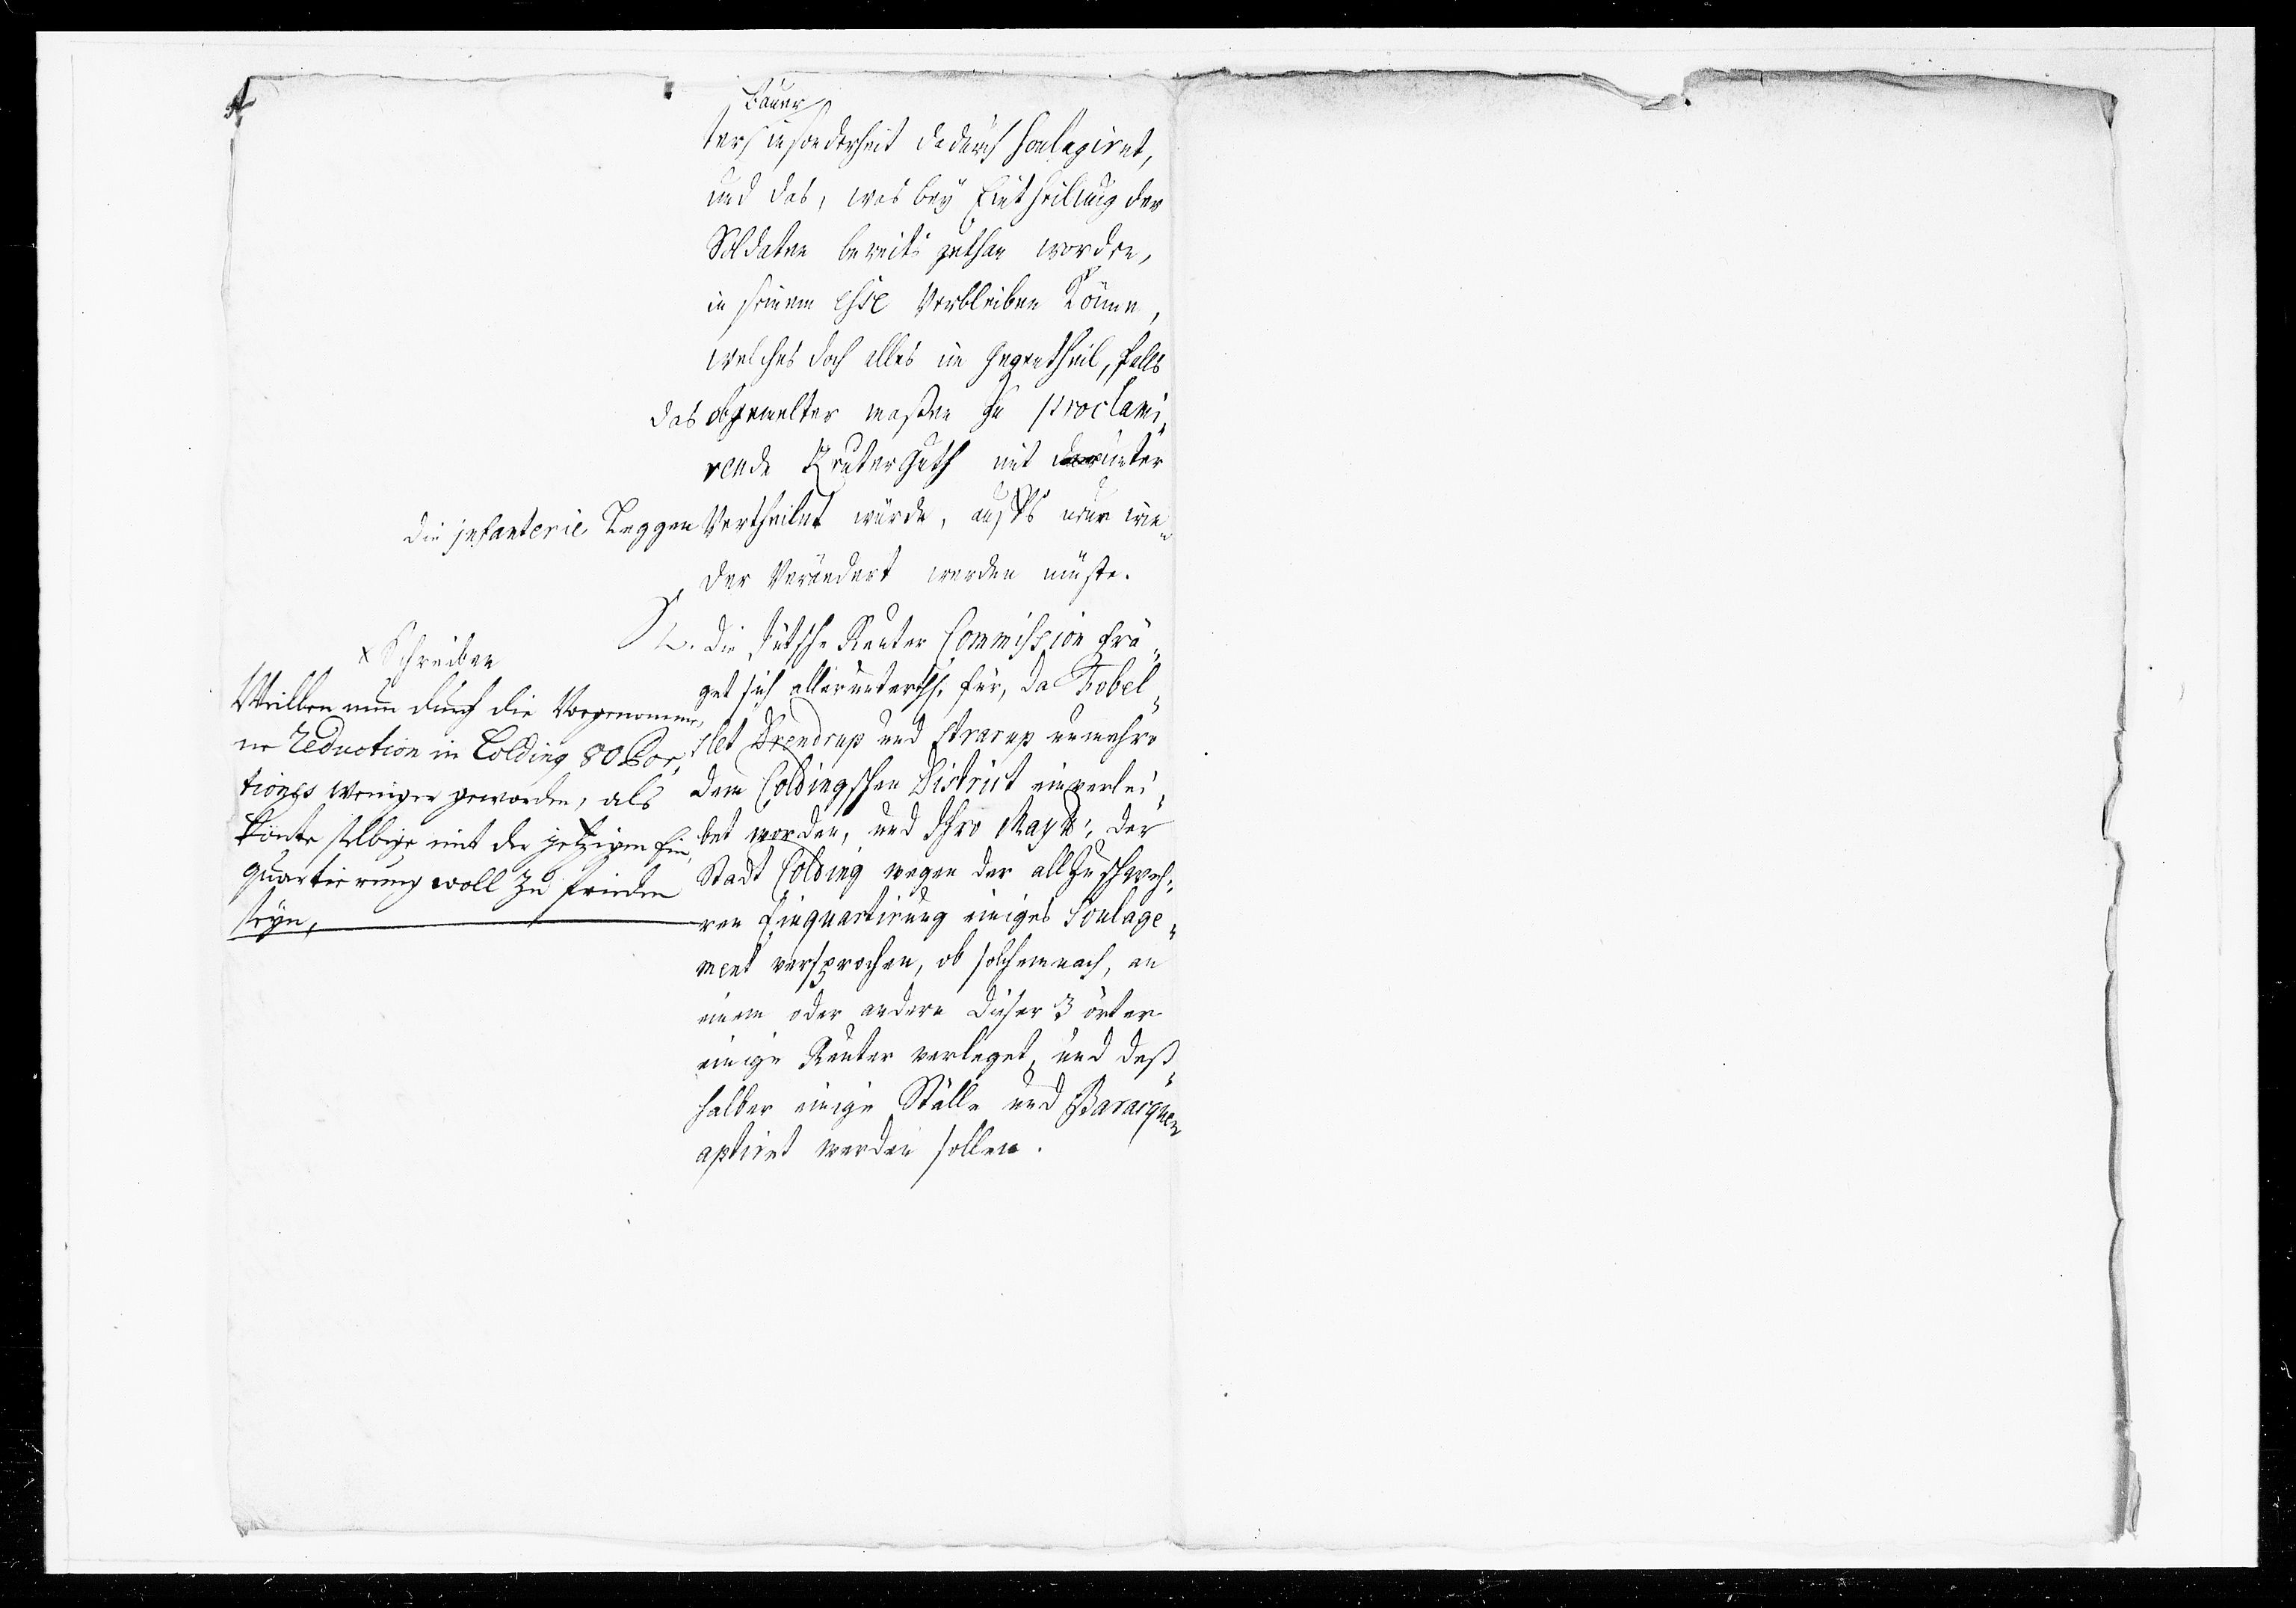 Bauer
ters insonderheit dadurch soulagiret,
und das, was bey Eintheilung der
Soldaten bereits gethan worden,
in seinem esse verbleiben könne,
welches doch alles im Gegentheil, falls
das obgemelter maßen zu proclami„
rende Reuter Guth mit darunter
die jnfanterie Leggen Vertheilet würde, aufs neue wie„
der Verändert werden müste.
2. Die Jütsche Reuter Commission frä„
get sich allerunterth. für, da Fobel„
let Drendrup und Strarup nunmehro
dem Coldingschen District einverlei„
bet worden, und Ihro Mayt: der
Stadt Colding wegen der allzuschweh„
ren Einquartirung einiges Soulage„
ment versprochen, ob solchemnach, an
einem oder andern dieser 3 örter
einige Reuter verleget, und deß„
halber einige Ställe und Baracquen
aptiret werden sollen.
x Schreiben
Weillen nun durch die Vorgenomme„
ne Reduction in Colding 80 Por„
tiones weniger geworden, als
könte selbige mit der jetzigen Ein„
quartierung woll zu frieden
seyn,